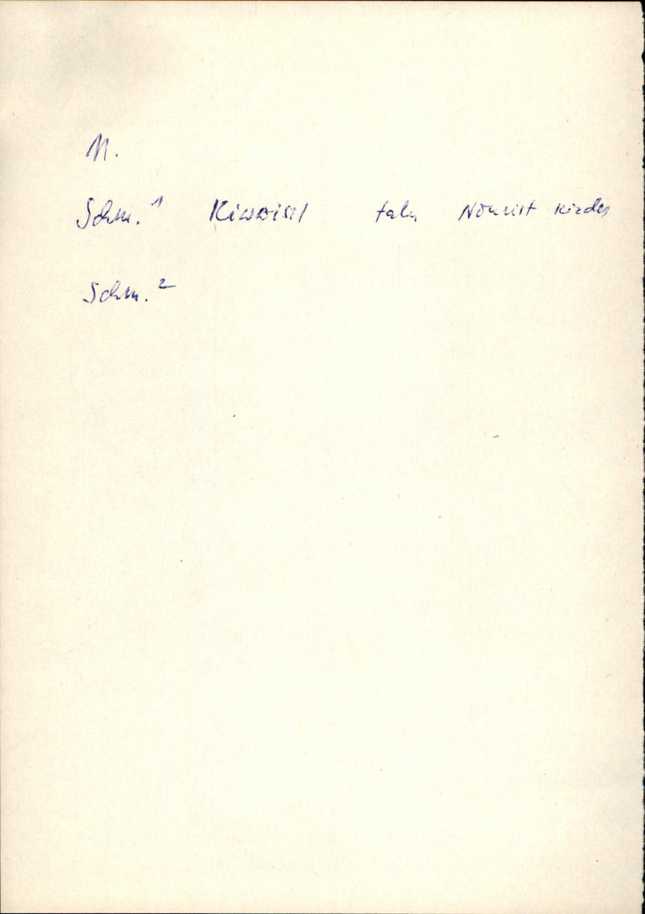 M.
Schm.¹ Kiwwisil talu Nõmvist kirdes
Schm.²